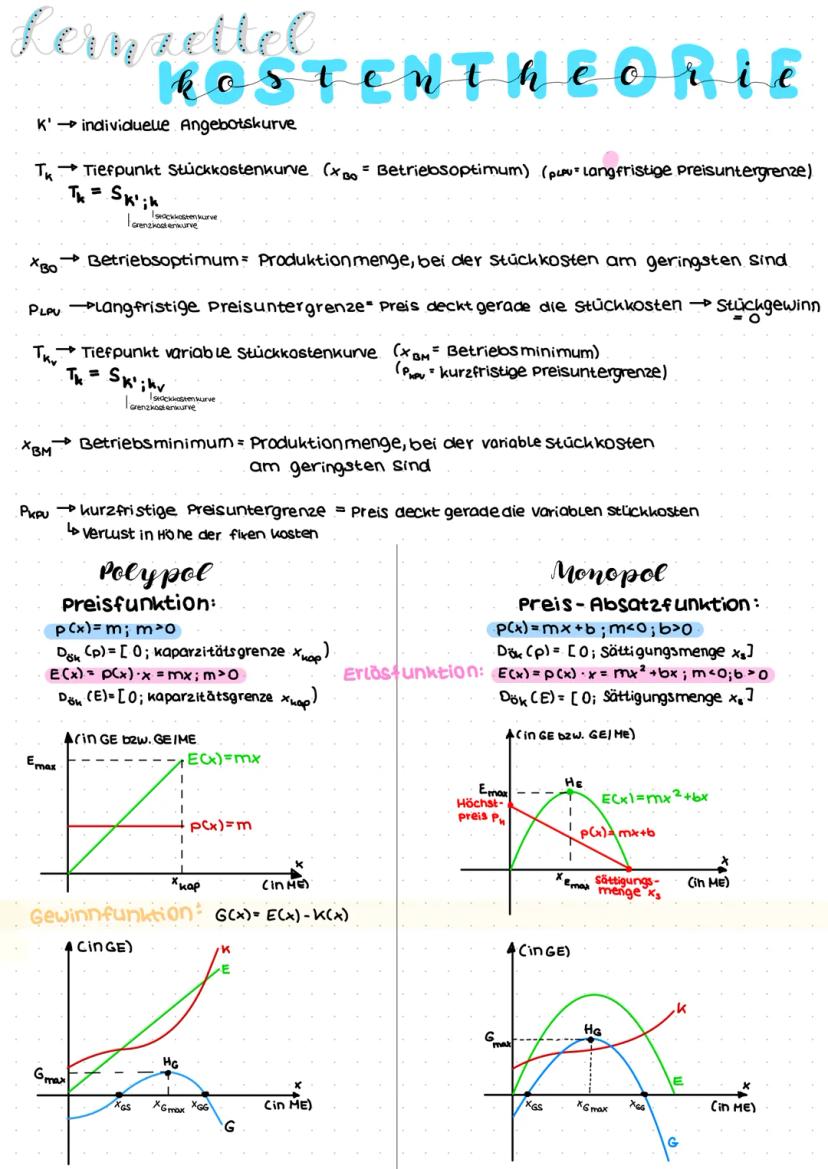 Lernzettel
KOSTENTHEORIE
kostentheorie
K' → individuelle Angebotskurve
Tk → Tiefpunkt Stückkostenkurve (xBO = Betriebsoptimum) (pLPU = langfristige Preisuntergrenze)
Tk = SK';k
Stückkostenkurve
Grenzkostenkurve
xBO → Betriebsoptimum = Produktionmenge, bei der Stückkosten am geringsten sind
PLPU → langfristige Preisuntergrenze = Preis deckt gerade die Stückkosten → Stückgewinn
= 0
Tkv → Tiefpunkt variable Stückkostenkurve (xBM = Betriebsminimum)
(PKPU = kurzfristige Preisuntergrenze)
Tk = SK';kv
Stückkostenkurve
Grenzkostenkurve
xBM → Betriebsminimum = Produktionmenge, bei der variable Stückkosten
am geringsten sind
PKPU → kurzfristige Preisuntergrenze = Preis deckt gerade die variablen Stückkosten
↳ Verlust in Höhe der fixen Kosten
Polypol
Preisfunktion:
p(x) = m; m>0
Dök (p) = [0; kaparzitätsgrenze xkap)
E(x) = p(x)·x = mx; m>0
Dök (E) = [0; kaparzitätsgrenze xkap)
Monopol
Preis-Absatzfunktion:
p(x) = mx + b; m<0; b>0
Dök (p) = [0; Sättigungsmenge xs]
Erlösfunktion: E(x) = p(x)·x = mx² + bx; m<0; b>0
Dök (E) = [0; Sättigungsmenge xs]
(in GE bzw. GE/ME
Emax
E(x) = mx
p(x) = m
x
xkap
(in ME)
(in GE bzw. GE/ME)
HE
Emax
E(x) = mx² + bx
Höchst-
preis PH
p(x) = mx+b
x
xEmax
Sättigungs-
menge xs
(in ME)
Gewinnfunktion: G(x) = E(x) - K(x)
(in GE)
K
E
HG
Gmax
x
xGS
xGmax
xGG
(in ME)
G
(in GE)
K
HG
Gmax
E
x
xGS
xGmax
xGG
(in ME)
G